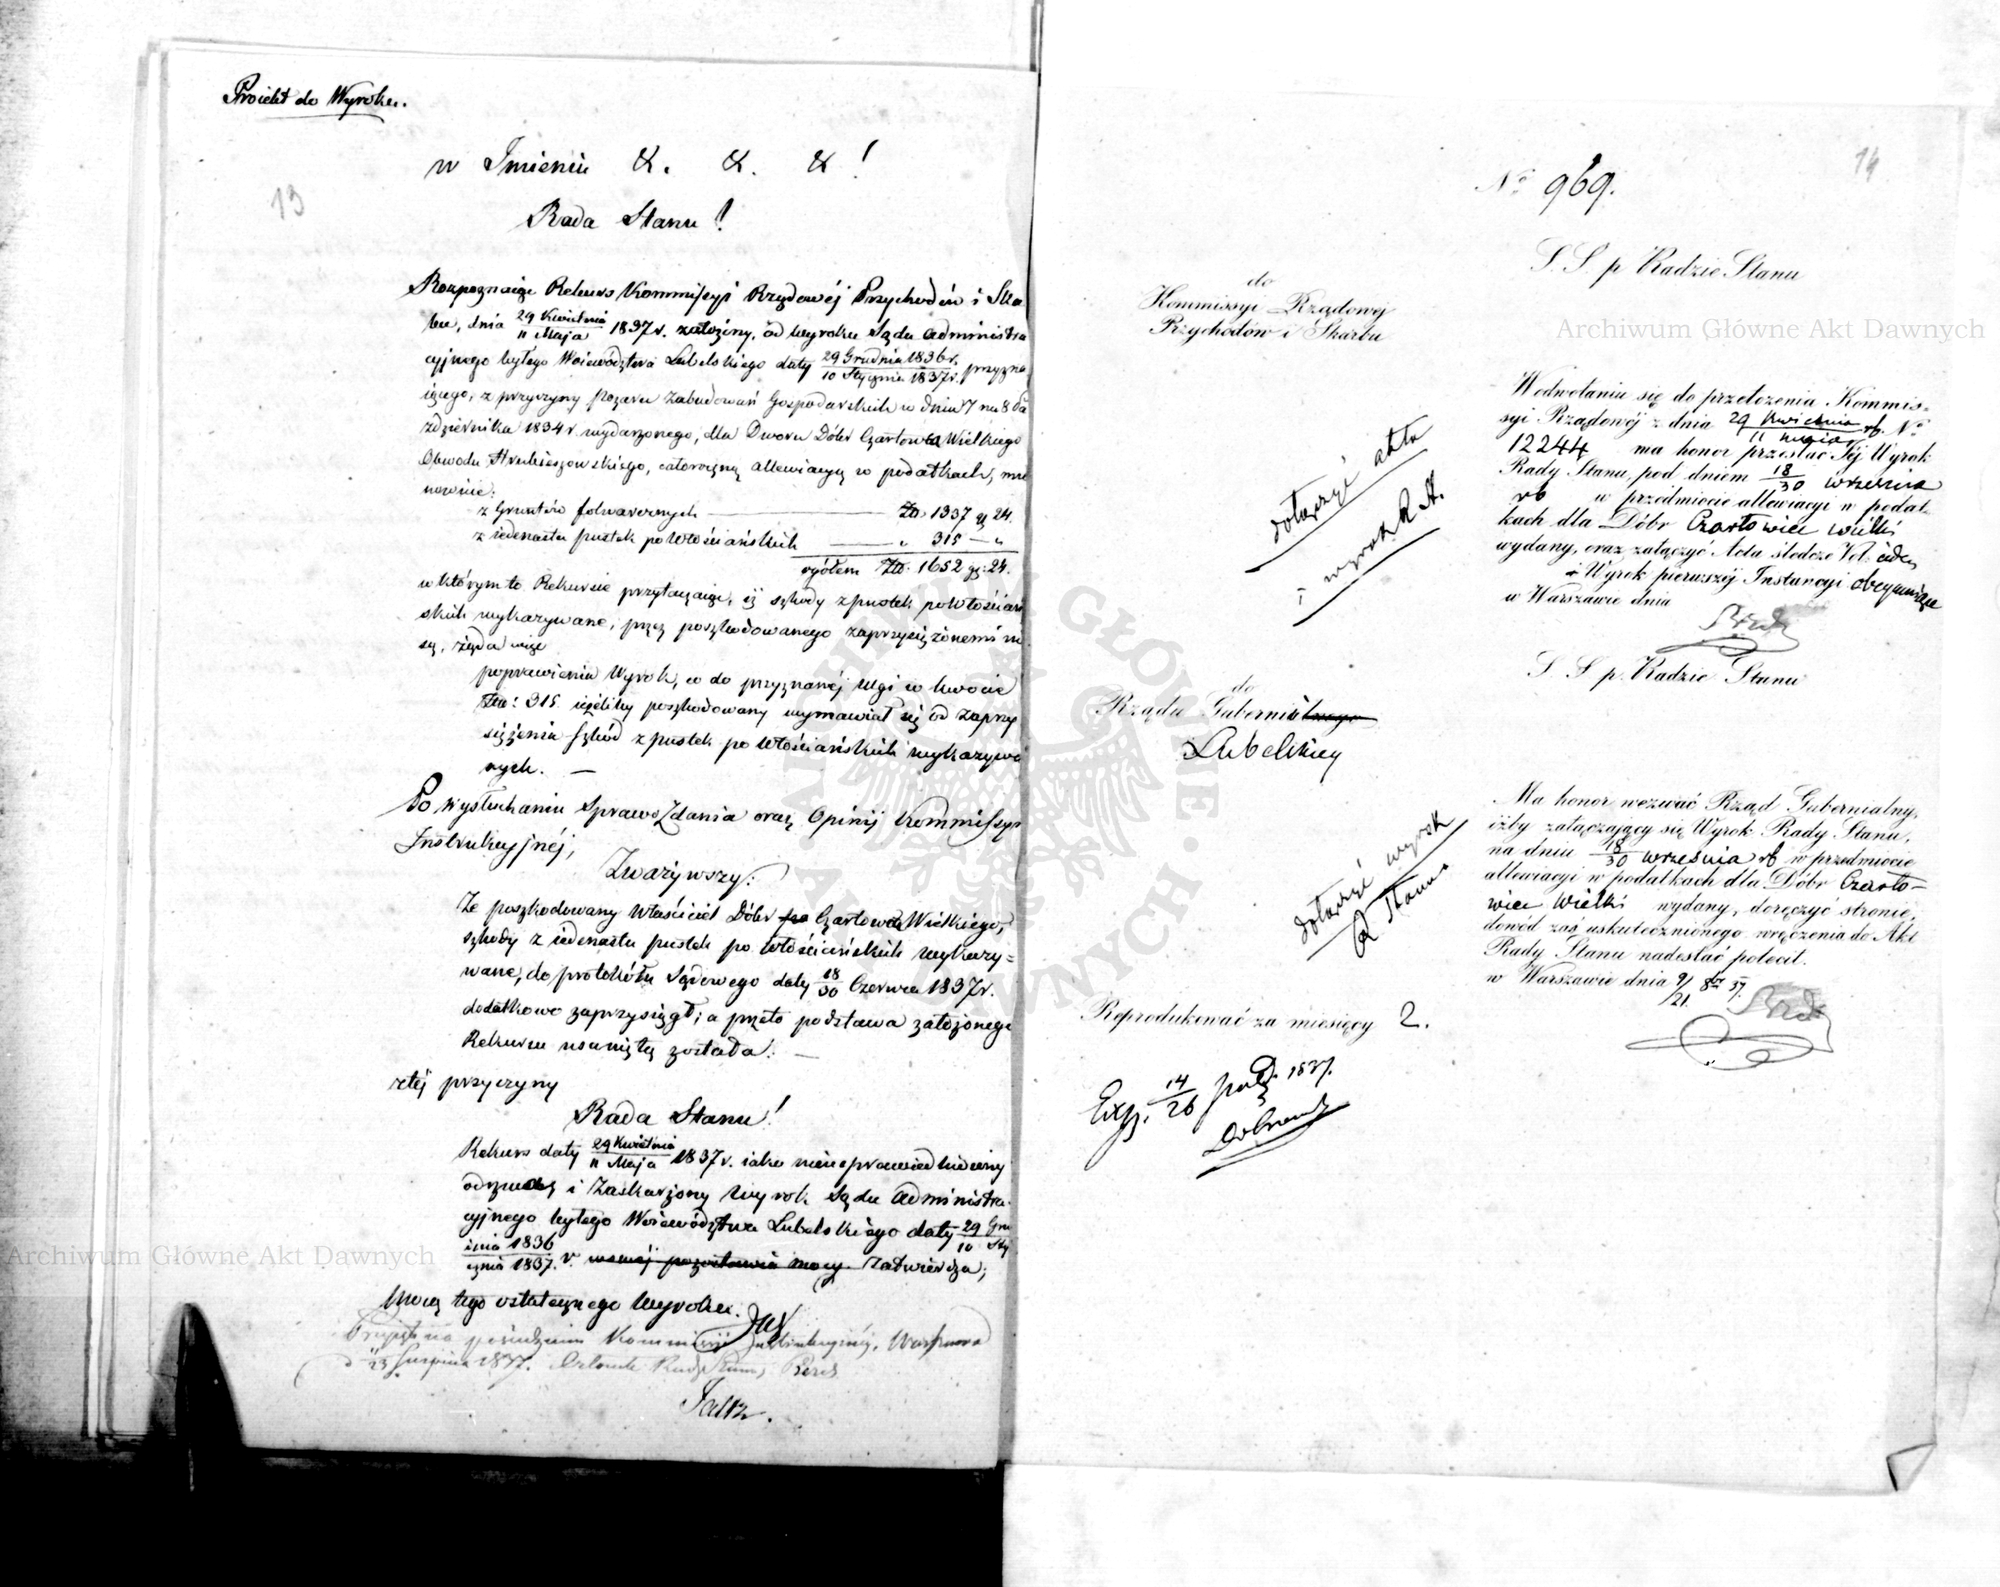 Proiekt do Wyroku.
13
w Imieniu &. &. &!
Rada Stanu!
Rozpoznaiąc Rekurs Kommissyi Rządowéj Przychodów i Skar
bu, dnia 29 Kwietnia / 11 Maja 1837 r. założony, od wyroku Sądu Administra
cyjnego byłego Województwa Lubelskiego daty 29 Grudnia 1836 r. / 10 Stycznia 1837 r. przyzna
iącego, z przyczyny pożaru Zabudowań Gospodarskich w dniu 7 na 8 Pa
ździernika 1834 r. wydarzonego, dla Dworu Dóbr Czartowca Wielkiego
Obwodu Hrubieszowskiego, całoroczną allewiacyą w podatkach, mia
nowicie:
z Gruntów folwarcznych Złp. 1337 g 24.
z iedenastu pustek po Włościańskich „ 315 — „
ogółem Złp. 1652 gr. 24.
w którym to Rekursie przytaczaiąc, iż szkody z pustek po Włościań
skich wykazywane, przez poszkodowanego zaprzysiężonemi nie
są, żąda więc
poprawienia Wyrok, co do przyznanéj ulgi w kwocie
Złp: 315. ieżeliby poszkodowany wymawiał się od zaprzy
siężenia szkód z pustek po Włościańskich wykazywa
nych. —
Po wysłuchaniu Sprawozdania oraz Opinij Kommissyi
Instrukcyjnéj,
Zważywszy:
Że poszkodowany Właściciel Dóbr po Czartowca Wielkiego,
szkody z iedenastu pustek po Włościańskich wykazy=
wane, do protokółu Sądowego daty 18/30 Czerwca 1837 r.
dodatkowo zaprzysiągł; a przeto podstawa założonego
Rekursu usuniętą została. —
z téj przyczyny
Rada Stanu!
Rekurs daty 29 Kwietnia / 11 Maja 1837 r. iako nieusprawiedliwiony
odrzuca i Zaskarżony wyrok Sądu Administra
cyjnego byłego Województwa Lubelskiego daty 29 Gru / 10 Sty
dnia 1836 / cznia 1837. r. w swéj pozostawia mocy. Zatwierdza;
Mocą tego ostatecznego Wyroku.
Przyjęto na posiedzeniu Kommissyi Instrukcyjnéj, Warszawa
d 11/23 Sierpnia 1837. Członek Rady Stanu,
14
No 969.
S. S. p. Radzie Stanu
do
Kommissyi Rządowéj
Przychodów i Skarbu
W odwołaniu się do przełożenia Kommis-
syi Rządowéj z dnia 29 kwietnia / 11 maja rb. No
12244 ma honor przesłać Jéj Wyrok
Rady Stanu, pod dniem 18/30 września
rb w przedmiocie allewiacyi w podat-
kach dla Dóbr Czartowiec wielki
wydany, oraz załączyć Akta śledcze Vol. ieden
i Wyrok pierwszéj Instancyi obeymuiące
w Warszawie dnia
dołączyć akta
i wyrok R. S.
S. S. p. Radzie Stanu
do
Rządu Gubernialnego
Lubelskiey
Ma honor wezwać Rząd Gubernialny,
iżby załączający się Wyrok Rady Stanu,
na dniu 18/30 września rb w przedmiocie
allewiacyi w podatkach dla Dóbr Czarto-
wiec Wielki wydany, doręczyć stronie,
dowód zaś uskutecznionego wręczenia do Akt
Rady Stanu nadesłać polecił.
w Warszawie dnia 9/21. 8br 37.
dołączyć wyrok
R Stanu
Reprodukować za miesięcy 2.
Exp. 14/26 paźd. 1837.
Archiwum Główne Akt Dawnych
Archiwum Główne Akt Dawnych
ARCHIWUM GŁÓWNE AKT DAWNYCH